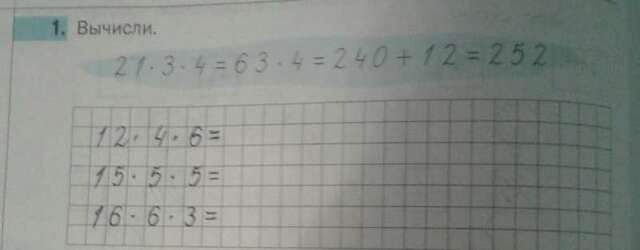 1. Вычисли.
21·3·4=63·4=240+12=252
12·4·6=
15·5·5=
16·6·3=